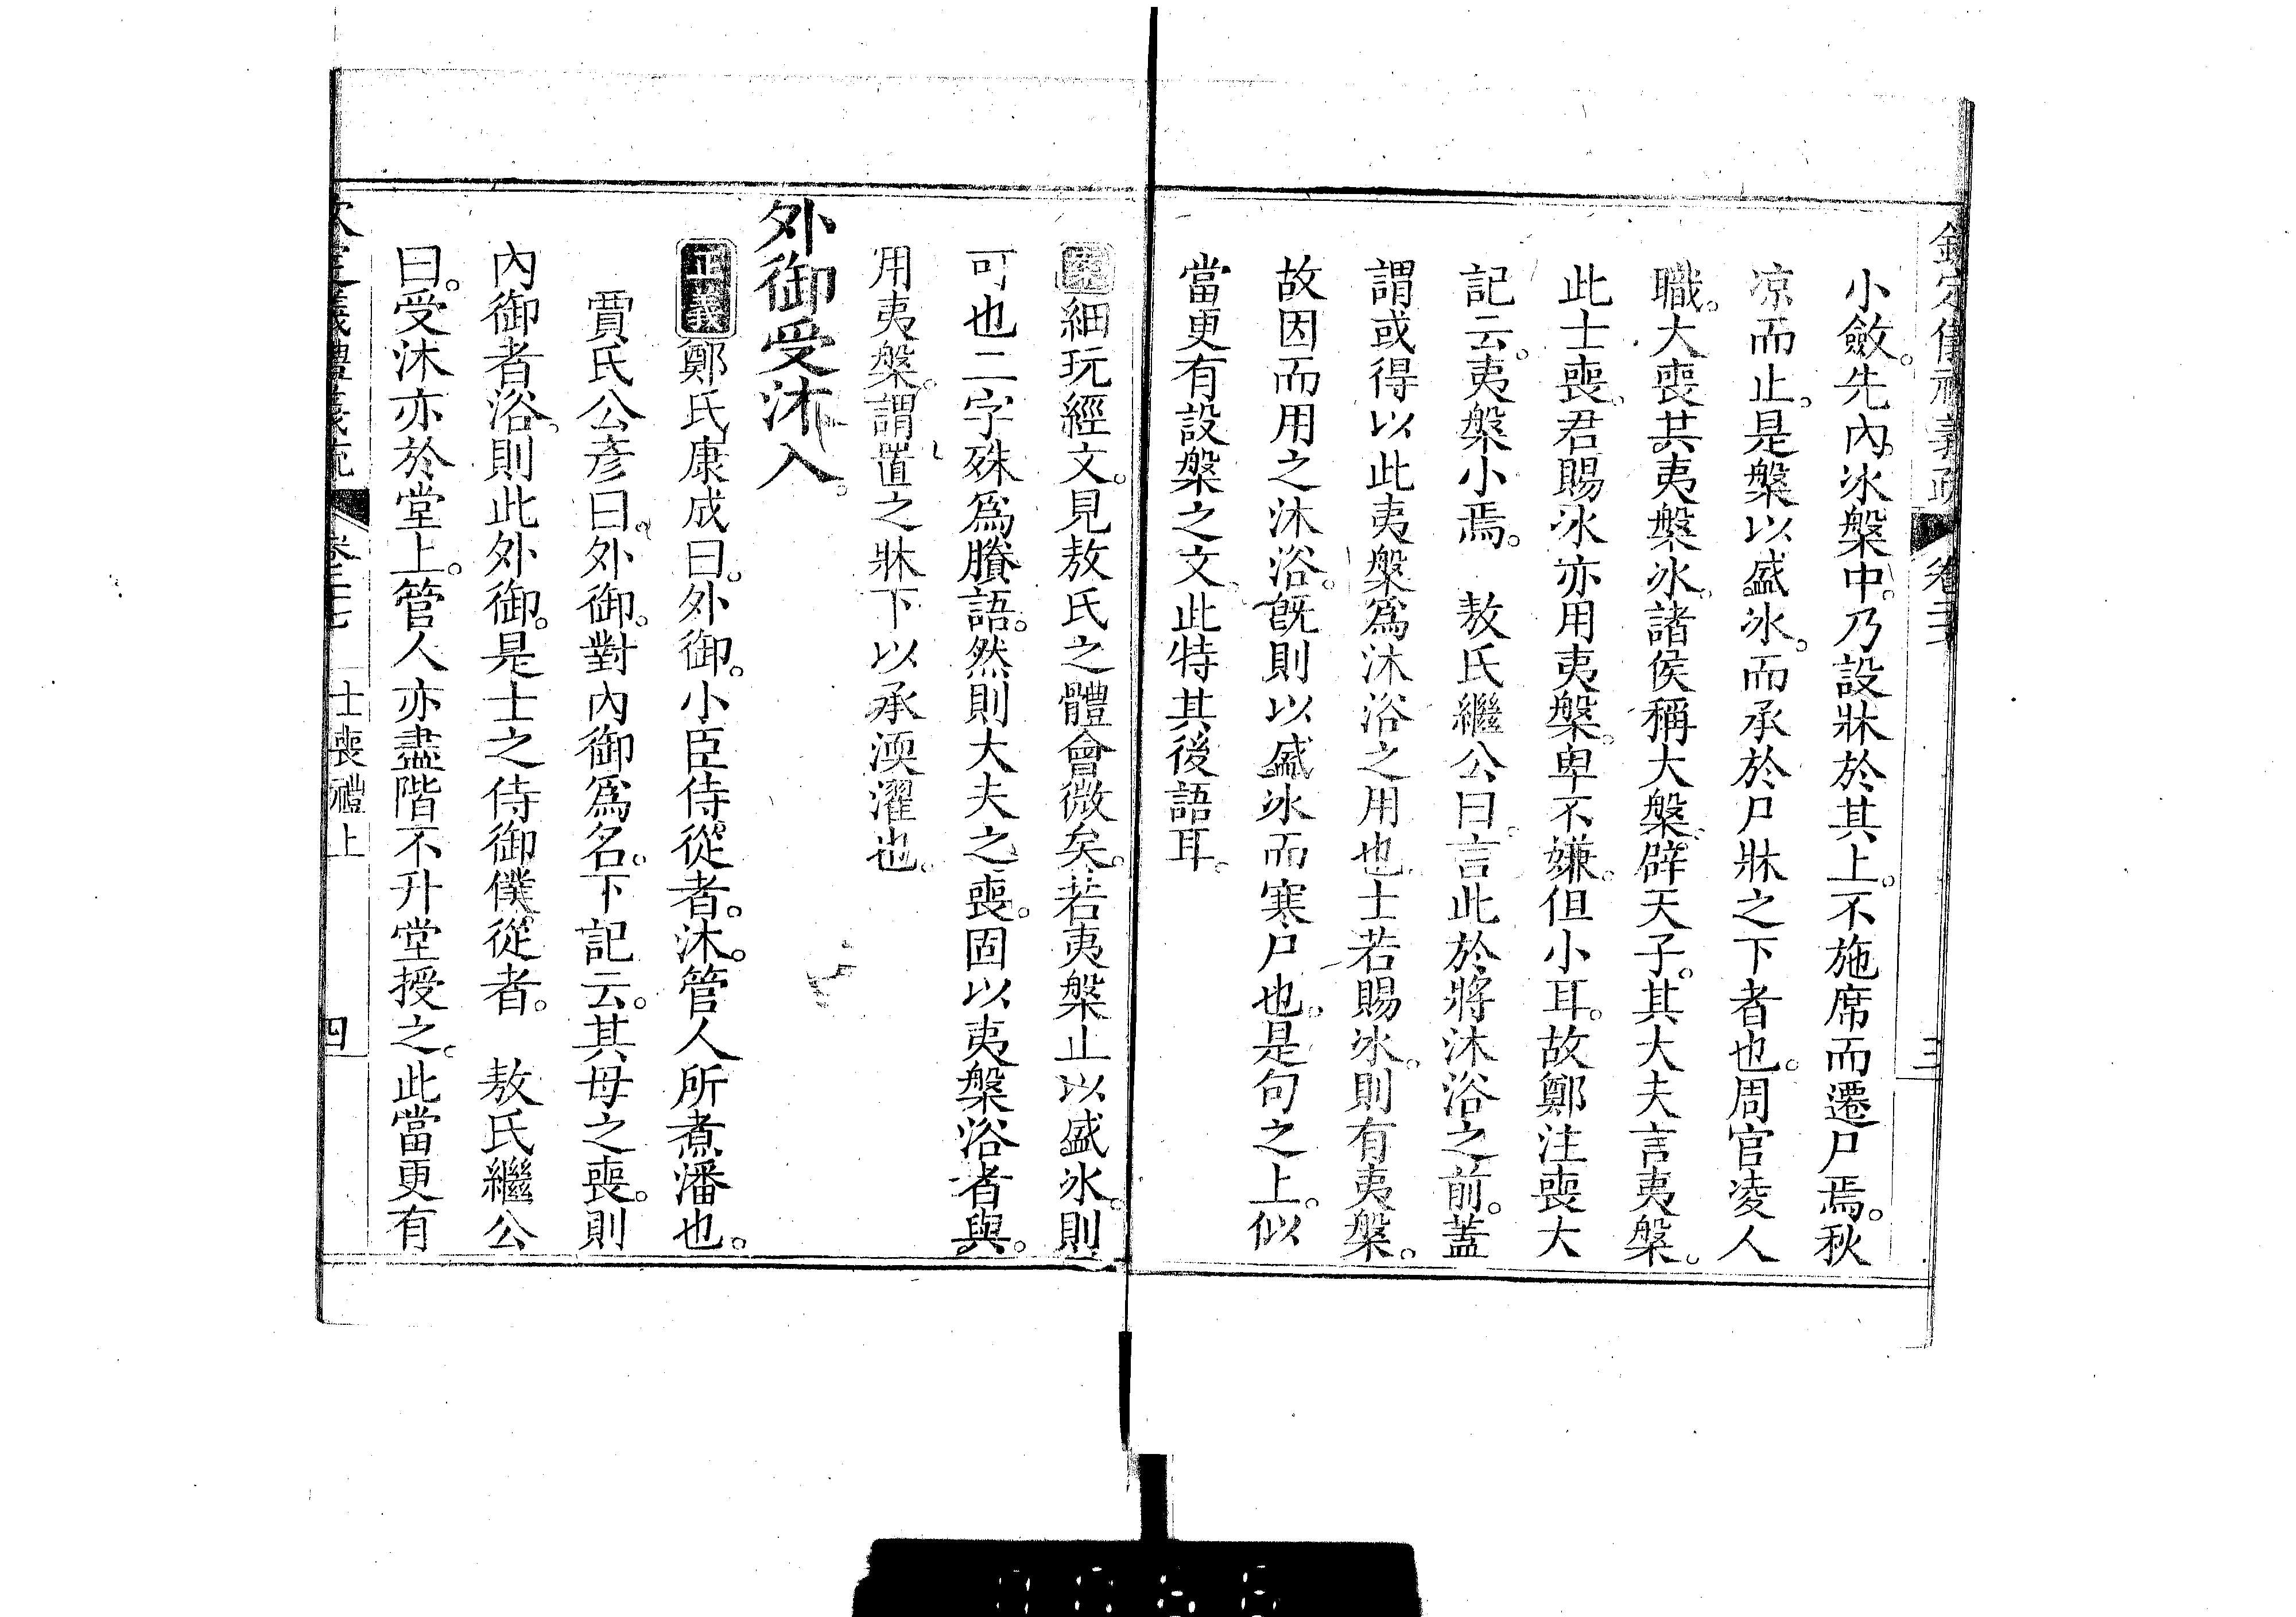 小斂。先內冰槃中。乃設牀於其上。不施席而遷尸焉。秋
凉而止。是槃以盛冰。而承於尸牀之下者也。周官凌人
職。大喪其夷槃冰。諸侯稱大槃。辟天子。其大夫言夷槃。
此士喪。君賜冰亦用夷槃。卑不嫌。但小耳。故鄭注喪大
記云。夷槃小焉。 敖氏繼公曰。言此於將沐浴之前。蓋
謂或得以此夷槃爲沐浴之用也。士若賜冰。則有夷槃。
故因而用之沐浴。旣則以盛冰而寒尸也。是句之上。似
當更有設槃之文。此特其後語耳。
案細玩經文。見敖氏之體會微矣。若夷槃止以盛冰。則
可也二字殊爲賸語。然則大夫之喪。固以夷槃浴者與。
用夷槃。謂置之牀下以承渜濯也。
外御受沐入。
正義鄭氏康成曰。外御。小臣侍從者。沐。管人所煮潘也。
賈氏公彥曰。外御。對內御爲名。下記云。其母之喪。則
內御者浴。則此外御。是士之侍御僕從者。 敖氏繼公
曰。受沐亦於堂上。管人亦盡階不升堂授之。此當更有
士喪禮上
四